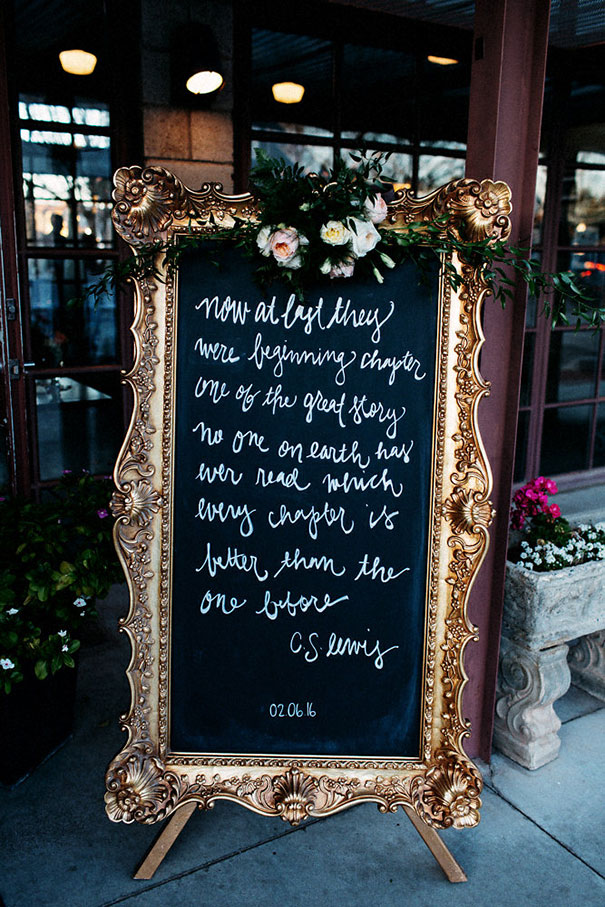 now at last they
were beginning chapter
one of the great story
no one on earth has
ever read which
every chapter is
better than the
one before
C.S. lewis
02.06.16